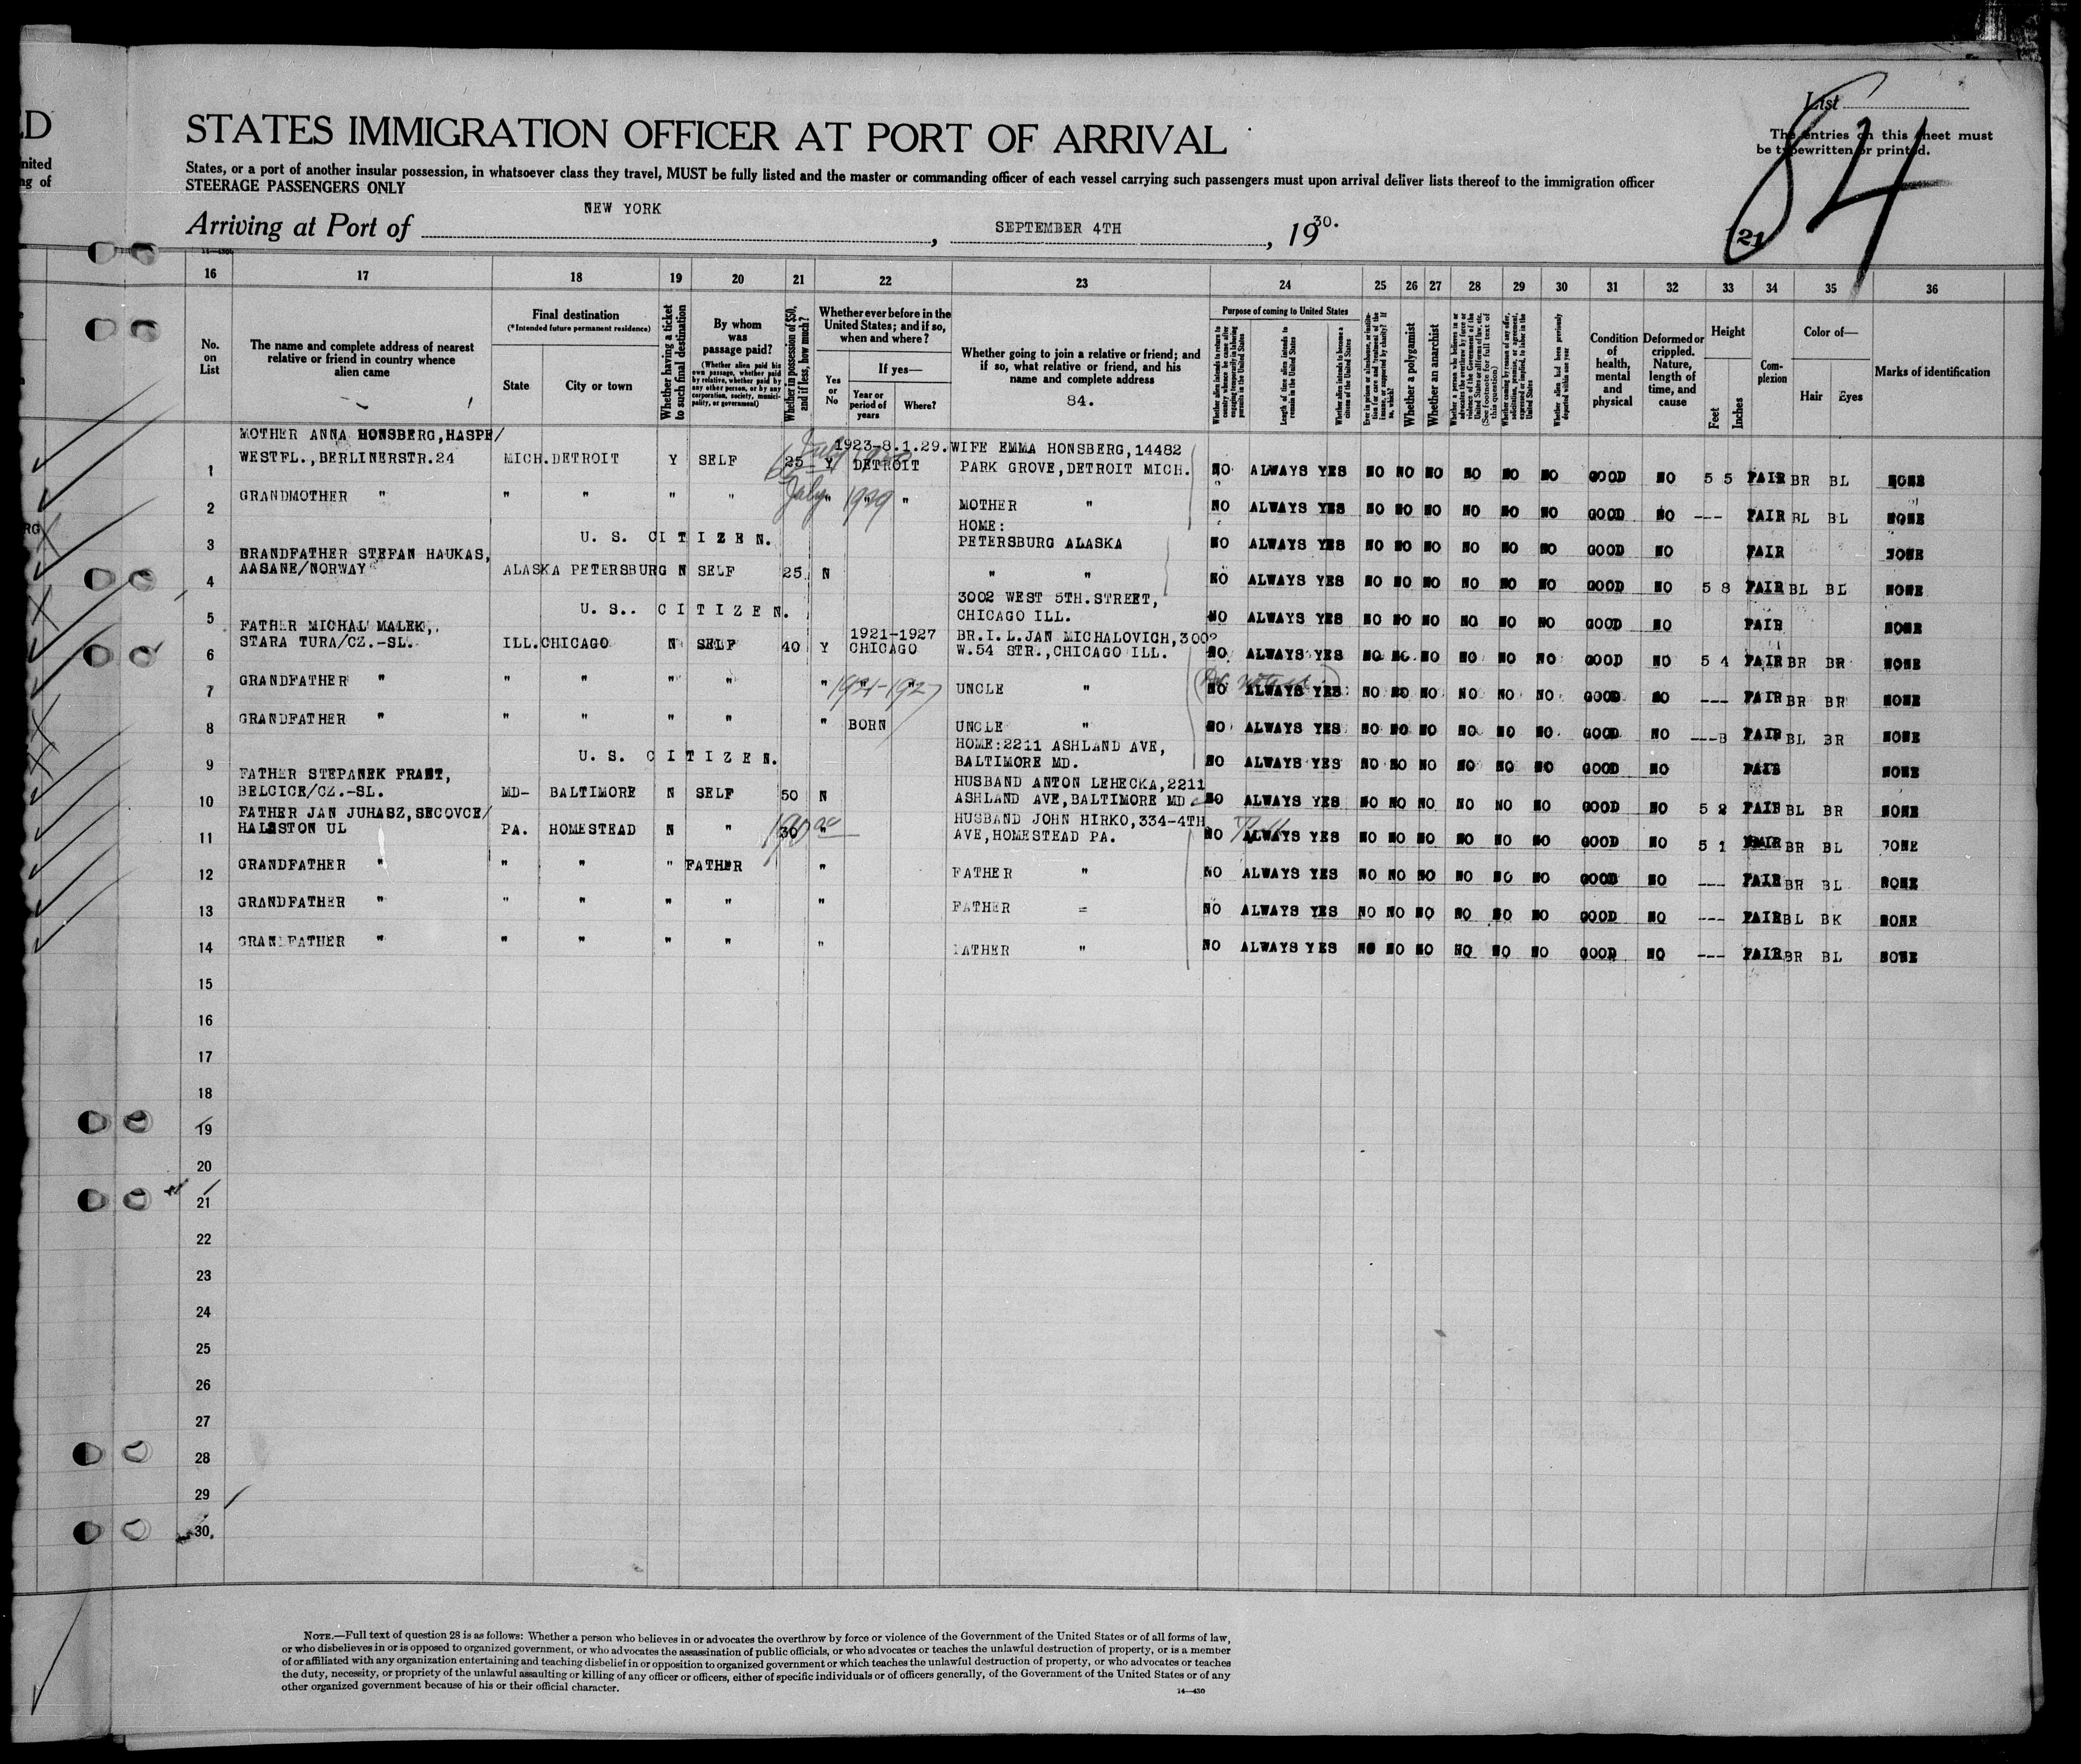 List
84
The entries on this sheet must
be typewritten or printed.
(21
D
nited
ng of
STATES IMMIGRATION OFFICER AT PORT OF ARRIVAL
States, or a port of another insular possession, in whatsoever class they travel, MUST be fully listed and the master or commanding officer of each vessel carrying such passengers must upon arrival deliver lists thereof to the immigration officer
STEERAGE PASSENGERS ONLY
Arriving at Port of NEW YORK, SEPTEMBER 4TH, 1930.
16 17 18 19 20 21 22 23 24 25 26 27 28 29 30 31 32 33 34 35 36
No. on List
The name and complete address of nearest relative or friend in country whence alien came
Final destination
(*Intended future permanent residence)
State City or town
Whether having a ticket to such final destination
By whom was passage paid?
(Whether alien paid his own passage, whether paid by relative, whether paid by any other person, or by any corporation, society, municipality, or government)
Whether in possession of $50, and if less, how much?
Whether ever before in the United States; and if so, when and where?
Yes or No
If yes—
Year or period of years Where?
Whether going to join a relative or friend; and if so, what relative or friend, and his name and complete address
84.
Purpose of coming to United States
Whether alien intends to return to country whence he came after engaging temporarily in laboring pursuits in the United States
Length of time alien intends to remain in the United States
Whether alien intends to become a citizen of the United States
Ever in prison or almshouse, or institution for care and treatment of the insane, or supported by charity? If so, which?
Whether a polygamist
Whether an anarchist
Whether a person who believes in or advocates the overthrow by force or violence of the Government of the United States or all forms of law, etc. (See footnote for full text of this question)
Whether coming by reason of any offer, solicitation, promise, or agreement, expressed or implied, to labor in the United States
Whether alien had been previously deported within one year
Condition of health, mental and physical
Deformed or crippled. Nature, length of time, and cause
Height
Feet Inches
Complexion
Color of—
Hair Eyes
Marks of identification
MOTHER ANNA HONSBERG,HASPE/ 1923-8.1.29. WIFE EMMA HONSBERG,14482
1 WESTFL.,BERLINERSTR.24 MICH. DETROIT Y SELF 25 Y DETROIT PARK GROVE,DETROIT MICH. NO ALWAYS YES NO NO NO NO NO NO GOOD NO 5 5 FAIR BR BL NONE
2 GRANDMOTHER " " " " " July 1929 " " " MOTHER " NO ALWAYS YES NO NO NO NO NO NO GOOD NO --- FAIR BL BL NONE
HOME:
3 U. S. CITIZEN. PETERSBURG ALASKA NO ALWAYS YES NO NO NO NO NO NO GOOD NO FAIR NONE
BRANDFATHER STEFAN HAUKAS,
4 AASANE/NORWAY ALASKA PETERSBURG N SELF 25 N " " NO ALWAYS YES NO NO NO NO NO NO GOOD NO 5 8 FAIR BL BL NONE
3002 WEST 5TH.STREET,
5 U. S.. CITIZEN. CHICAGO ILL. NO ALWAYS YES NO NO NO NO NO NO GOOD NO FAIR NONE
FATHER MICHAL MALEK, 1921-1927 BR.I.L.JAN MICHALOVICH,3002
6 STARA TURA/CZ.-SL. ILL. CHICAGO N SELF 40 Y CHICAGO W.54 STR.,CHICAGO ILL. NO ALWAYS YES NO NO NO NO NO NO GOOD NO 5 4 FAIR BR BR NONE
7 GRANDFATHER " " " " " " " " 1921-1927 UNCLE " NO ALWAYS YES NO NO NO NO NO NO GOOD NO --- FAIR BR BR NONE
8 GRANDFATHER " " " " " " BORN UNCLE " NO ALWAYS YES NO NO NO NO NO NO GOOD NO --- FAIR BL BR NONE
HOME:2211 ASHLAND AVE,
9 U. S. CITIZEN. BALTIMORE MD. NO ALWAYS YES NO NO NO NO NO NO GOOD NO FAIR NONE
FATHER STEPANEK FRANT, HUSBAND ANTON LEHECKA,2211
10 BELCICE/CZ.-SL. MD- BALTIMORE N SELF 50 N ASHLAND AVE,BALTIMORE MD NO ALWAYS YES NO NO NO NO NO NO GOOD NO 5 2 FAIR BL BR NONE
FATHER JAN JUHASZ,SECOVCE/ HUSBAND JOHN HIRKO,334-4TH
11 HALESTON UL PA. HOMESTEAD N " 30 " AVE,HOMESTEAD PA. NO ALWAYS YES NO NO NO NO NO NO GOOD NO 5 1 FAIR BR BL NONE
12 GRANDFATHER " " " " FATHER " FATHER " NO ALWAYS YES NO NO NO NO NO NO GOOD NO --- FAIR BR BL NONE
13 GRANDFATHER " " " " " " FATHER = NO ALWAYS YES NO NO NO NO NO NO GOOD NO --- FAIR BL BK NONE
14 GRANDFATHER " " " " " " FATHER " NO ALWAYS YES NO NO NO NO NO NO GOOD NO --- FAIR BR BL NONE
15
16
17
18
19
20
21
22
23
24
25
26
27
28
29
30
NOTE.—Full text of question 28 is as follows: Whether a person who believes in or advocates the overthrow by force or violence of the Government of the United States or of all forms of law,
or who disbelieves in or is opposed to organized government, or who advocates the assassination of public officials, or who advocates or teaches the unlawful destruction of property, or is a member
of or affiliated with any organization entertaining and teaching disbelief in or opposition to organized government or which teaches the unlawful destruction of property, or who advocates or teaches
the duty, necessity, or propriety of the unlawful assaulting or killing of any officer or officers, either of specific individuals or of officers generally, of the Government of the United States or of any
other organized government because of his or their official character.
14—430